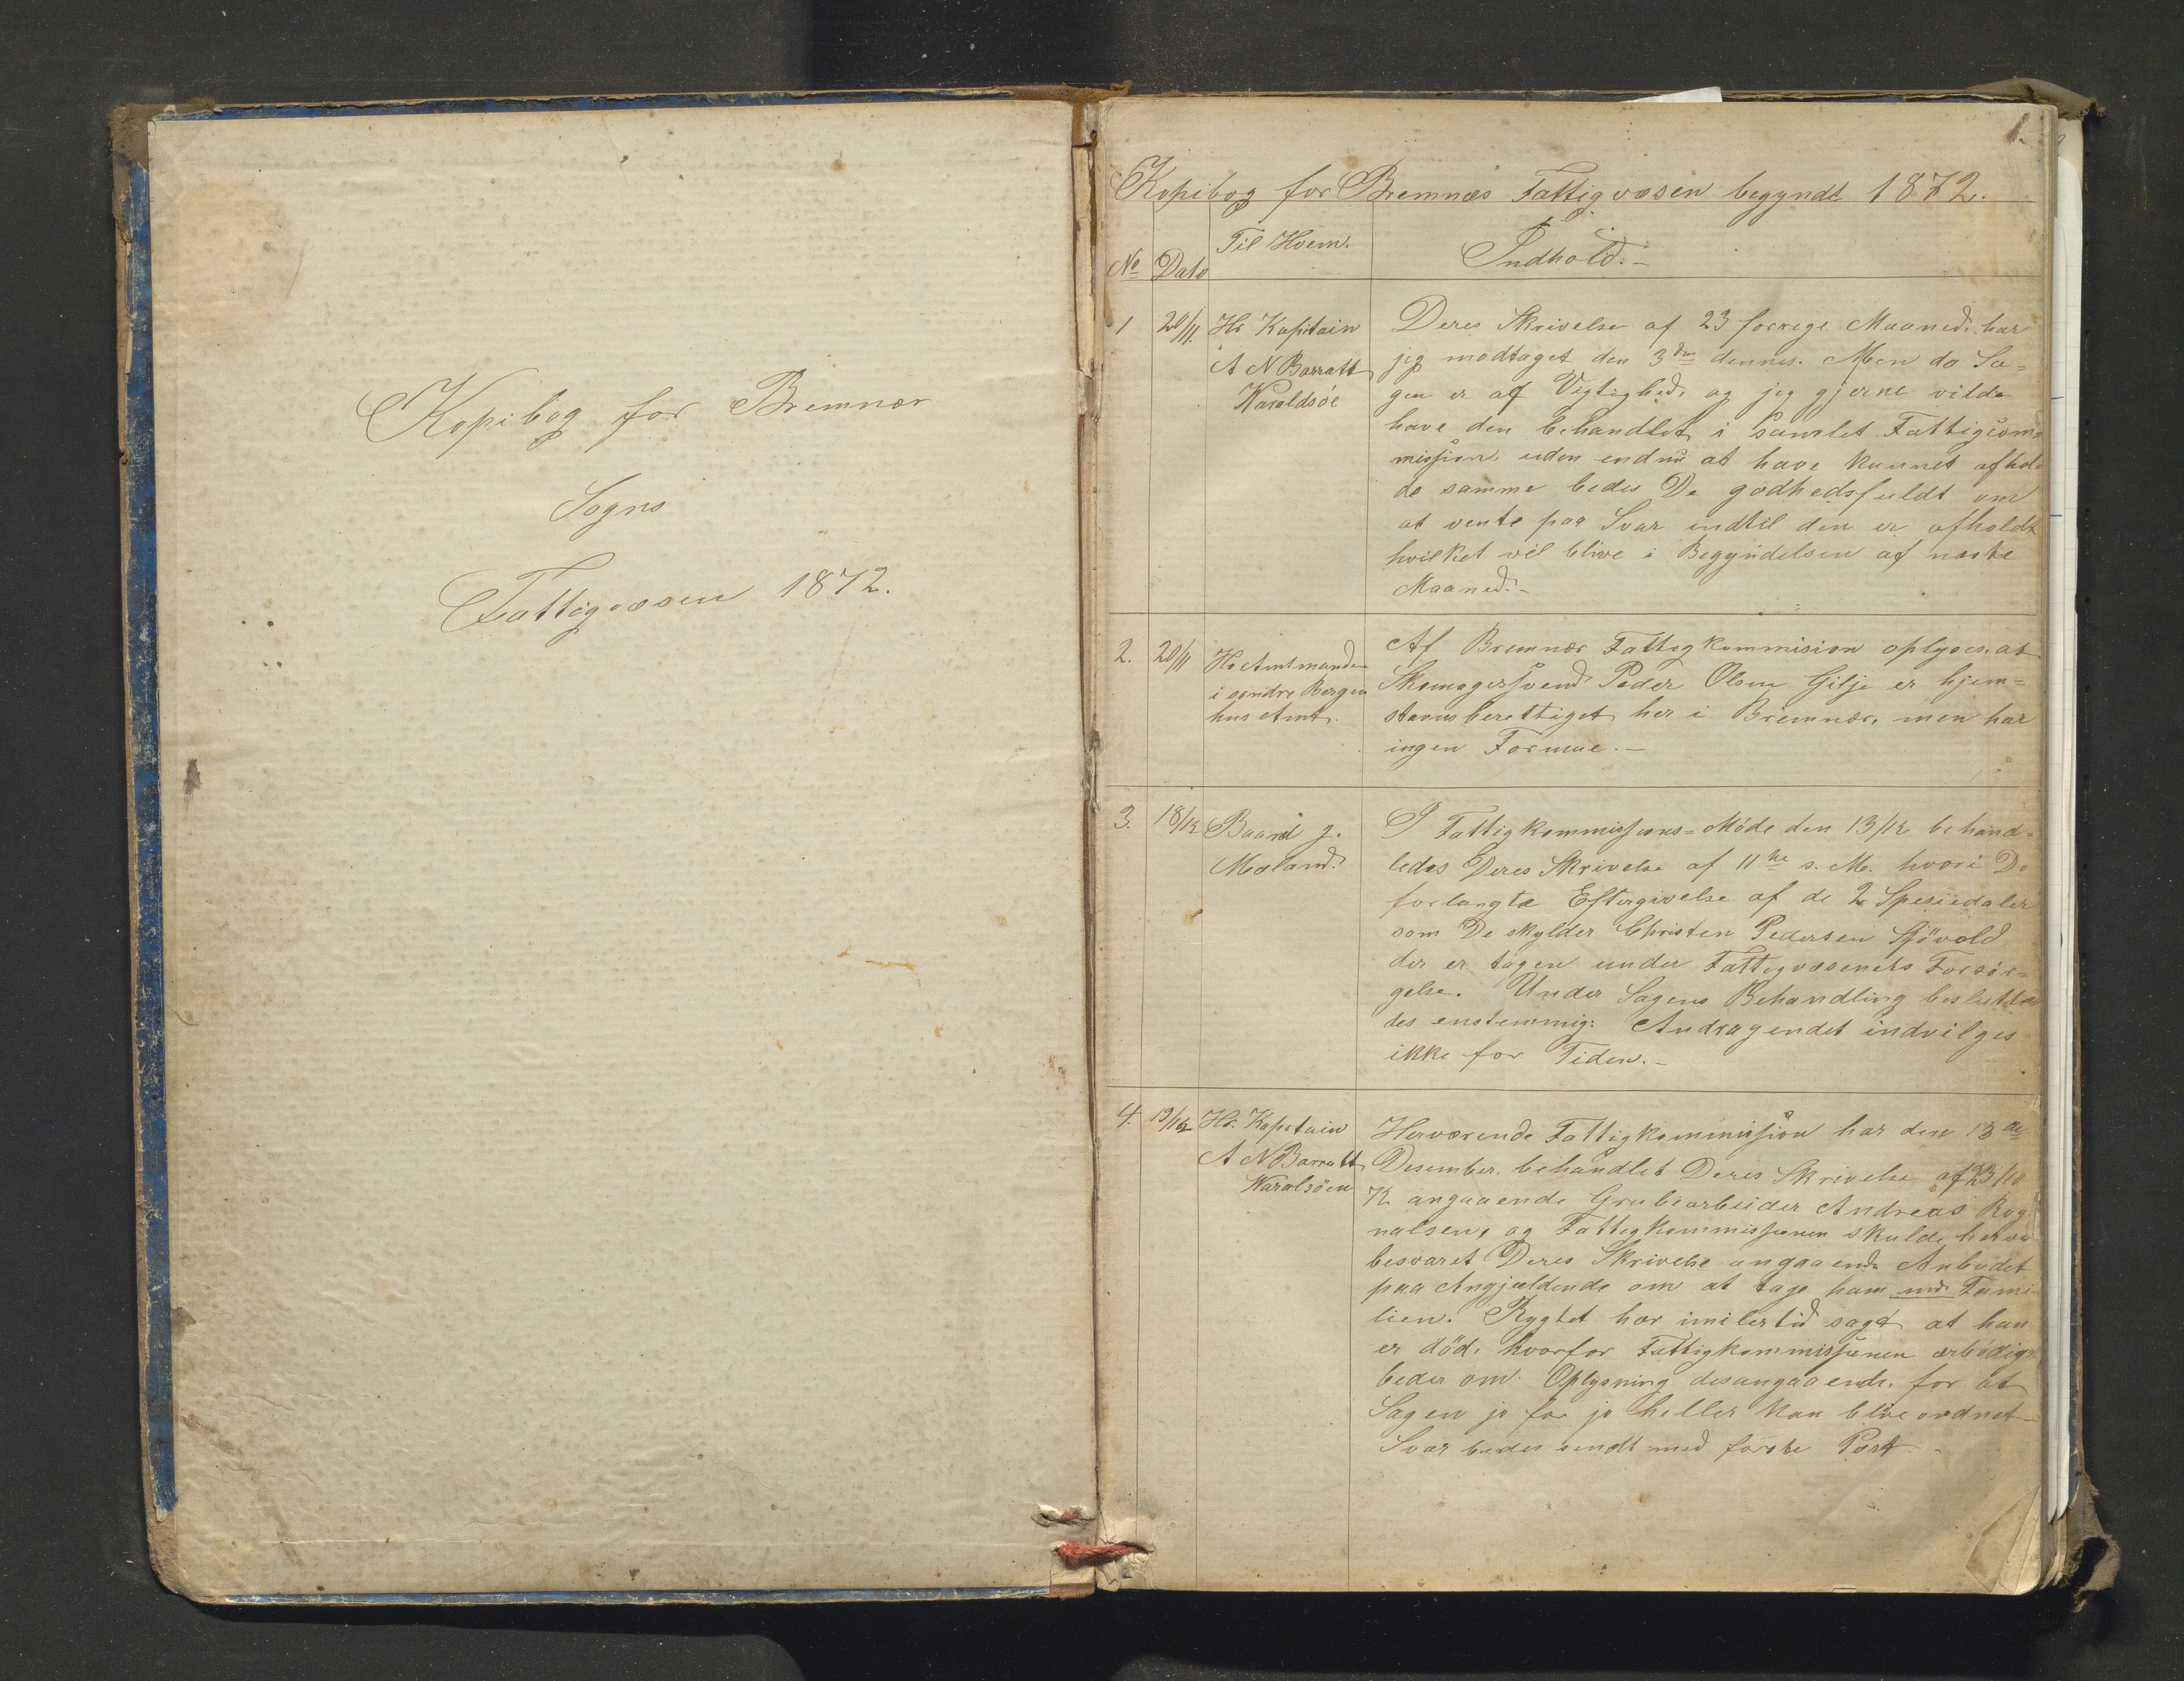 Kopibog for Bremnæs
Sogns
Fattigvæsen 1872.
1.
Kopibog for Bremnæs Fattigvæsen begyndt 1872.
No Dato Til Hvem. Indhold.-
1 20/11. Hr Kapitain
A N Barratt
Varaldsöe
Deres Skrivelse af 23 forrige Maaned, har
jeg modtaget den 3die dennes. Men da Sa=
gen er af Vigtighed, og jeg gjerne vilde
have den behandlet i samlet Fattigcom=
mission, uden endnu at have kunnet afhol=
de samme bedes De godhedsfuldt om
at vente paa Svar indtil den er afholdt
hvilket vil blive i Begyndelsen af næste
Maaned.-
2. 20/11 Hr Amtmanden
i søndre Bergen
hus Amt.
Af Bremnæs Fattigkommision oplyses, at
Skomagersvend Peder Olsen Gilje er hjem=
stavnsberettiget her i Bremnæs, men har
ingen Formue.-
3. 18/12 Baard J.
Mæland.
I Fattigkommissions=Möde den 13/12 behand=
ledes Deres Skrivelse af 11te s. M. hvori De
forlangte Eftergivelse af de 2 Spesiedaler
som De skylder Christen Pedersen Sjövold
der er tagen under Fattigvæsenets Forsör=
gelse. Under Sagens Behandling beslutte
des enstemmig: Andragendet indvilges
ikke for Tiden.-
4. 19/12 Hr. Kapitain
A N Barratt
Varalsöen
Herværende Fattigkommission har den 13de
Desember, behandlet Deres Skrivelse af 23/10
72 angaaende Grubearbeider Andreas Rog
nalsen, og Fattigkommissionen skulde herved
besvaret Deres Skrivelse angaaende Anbudet
paa Angjældende om at tage ham med Fami
lien. Rygtet har imilertid sagt at han
er död, hvorfor Fattigkommissionen ærbödigst
beder om Oplysning desangaaende, for at
Sagen jo för jo heller kan blive ordnet-
Svar bedes sendt med förste Post.-